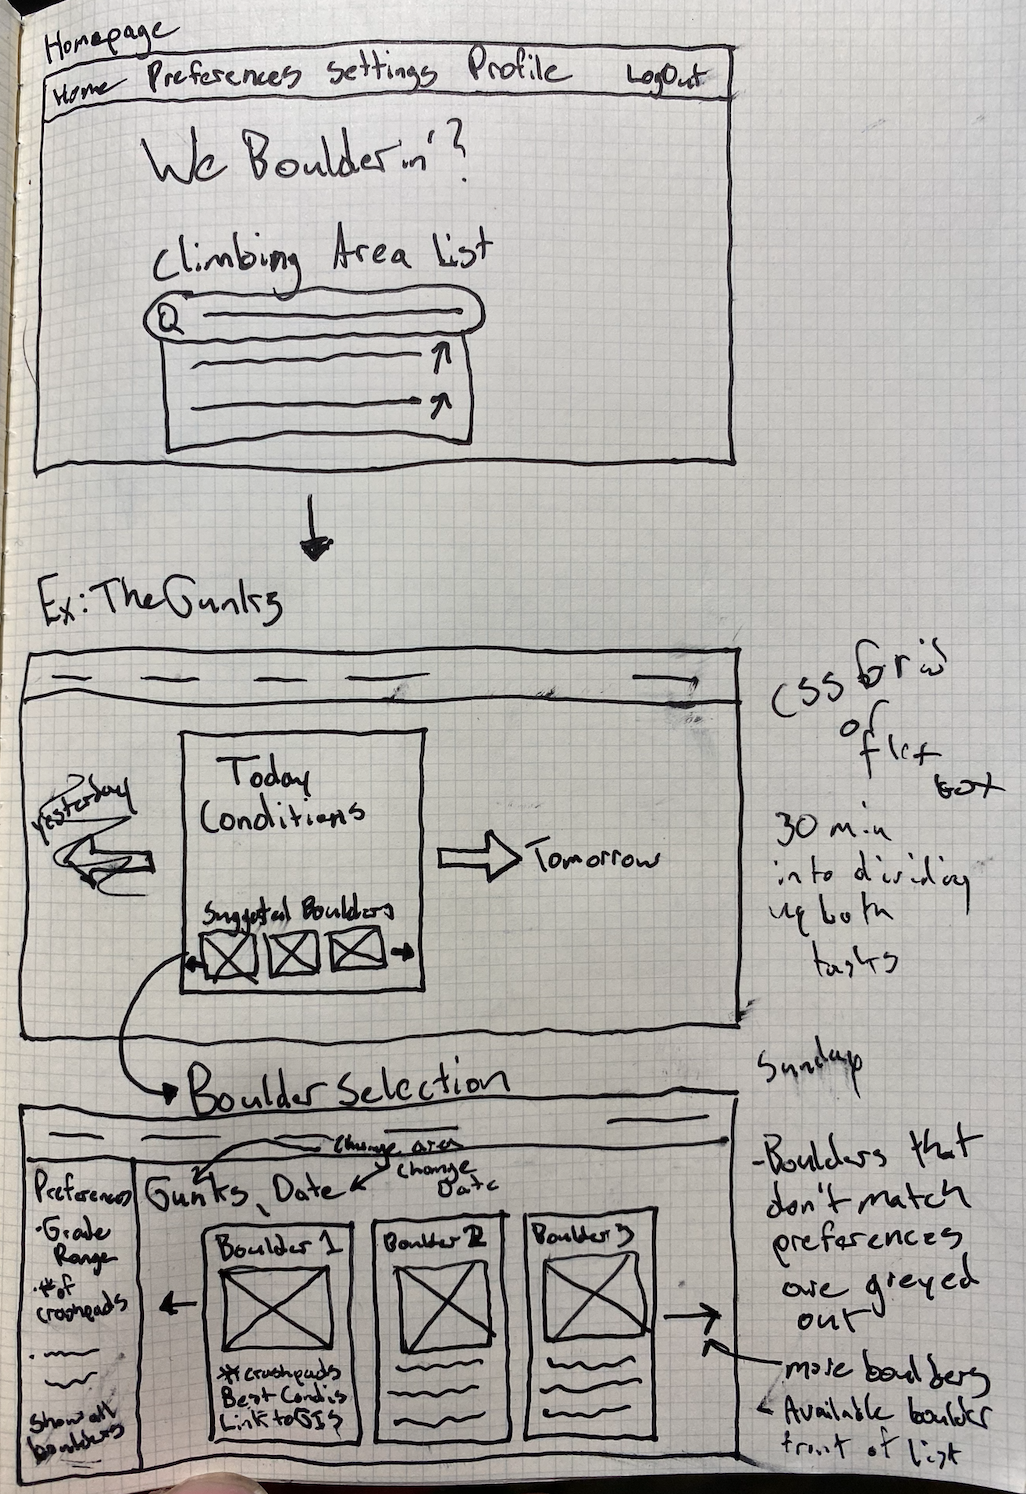 Homepage
Home Preferences Settings Profile LogOut
We Boulderin'?
Climbing Area List
Ex: The Gunks
Today
Conditions
Yesterday
Tomorrow
Suggested Boulders
CSS Grid
or
flex
box
30 min
into dividing
up both
tasks
Sunday
Boulder Selection
Change area
change
Date
Preferences
- Grade
Range
- # of
crashpads
Show all
boulders
Gunks, Date
Boulder 1
Boulder 2
Boulder 3
# crashpads
Best Condis
Link to GIS
- Boulders that
don't match
preferences
are greyed
out
more boulders
Available boulder
front of list